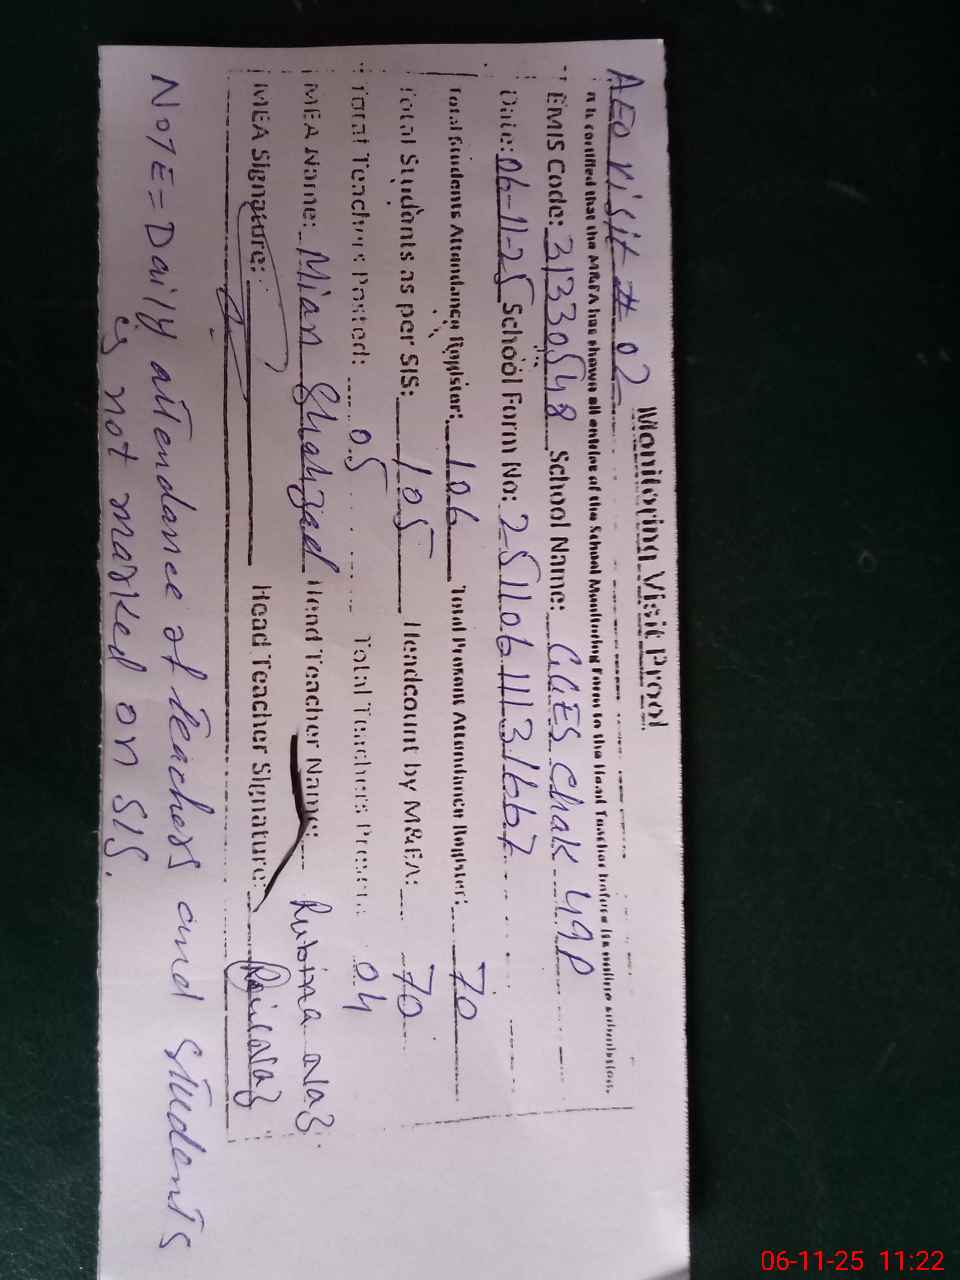 Monitoring Visit Proof
AEO visit # 02
It is certified that the M&EA has shown all entries of the School Monitoring Form to the Head Teacher before its online submission.
EMIS Code: 31330548 School Name: GGES Chak 49P
Date: 06-11-25 School Form No: 2511061131667
Total Students Attendance Register: 106 Total Present Attendance Register: 70
Total Students as per SIS: 105 Headcount by M&EA: 70
Total Teachers Posted: 05 Total Teachers Present: 04
MEA Name: Mian Shahzad Head Teacher Name: Rubina Naz
MEA Signature: Head Teacher Signature:
NOTE = Daily attendance of teachers and students
is not marked on SIS.
06-11-25 11:22